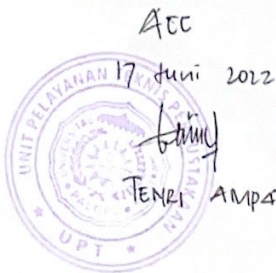 ACC
17 Juni 2022
TENRI AMPA
UNIT PELAYANAN TEKNIS PERPUSTAKAAN
UPT